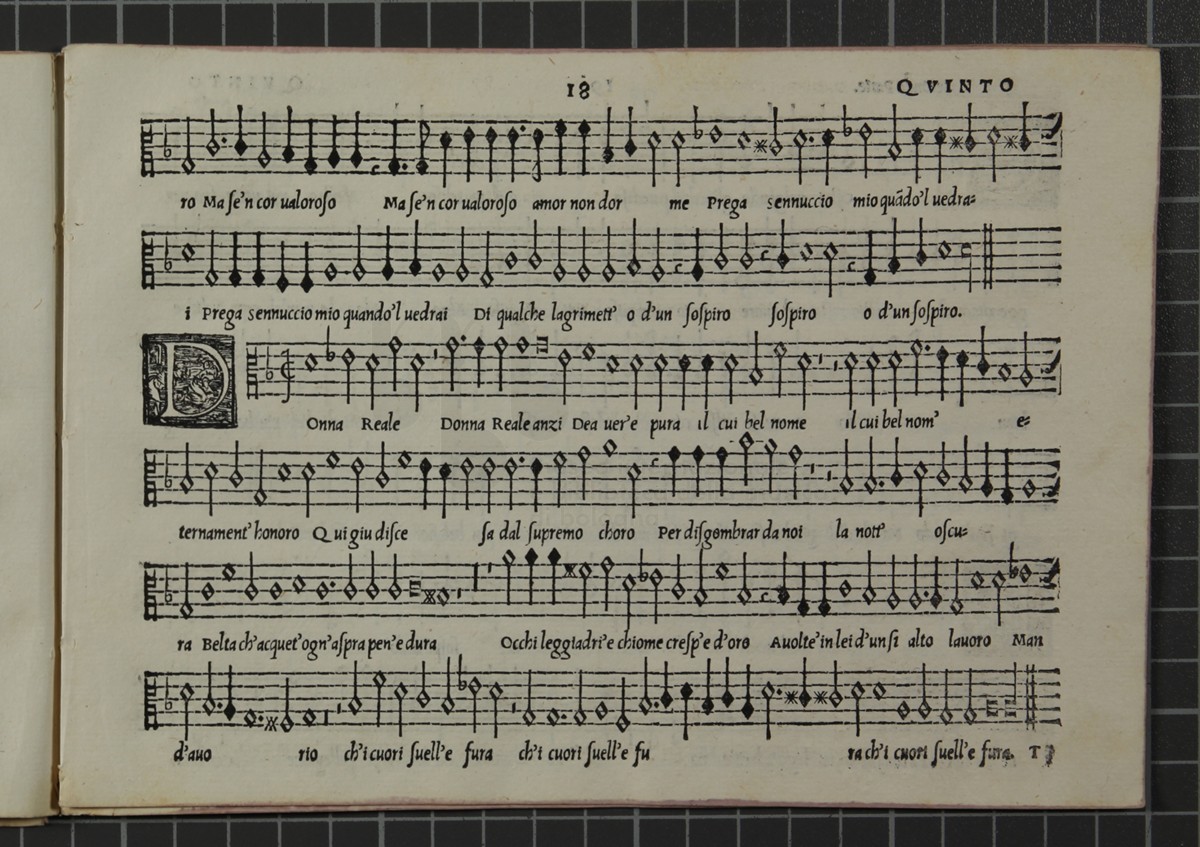 18 QVINTO
ro Ma se'n cor ualoroso Ma se'n cor ualoroso amor non dor me Prega sennuccio mio quãdo'l uedra=
i Prega sennuccio mio quando'l uedrai Di qualche lagrimett' o d'un sospiro sospiro o d'un sospiro.
DOnna Reale Donna Reale anzi Dea uer'e pura il cui bel nome il cui bel nom' e=
ternament' honoro Qui giu disce sa dal supremo choro Per disgombrar da noi la nott' oscu=
ra Belta ch'acquet' ogn'aspra pen'e dura Occhi leggiadri'e chiome cresp'e d'oro Auolte'in lei d'un si alto lauoro Man
d'auo rio ch'i cuori suell'e fura ch'i cuori suell'e fu ra ch'i cuori suell'e fura. T